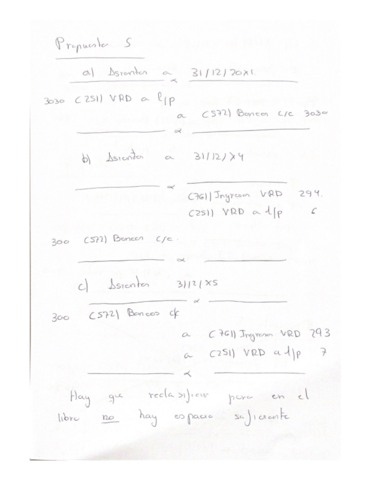 Propuesta 5
a) Asientos a 31/12/20x1
3030 (251) VRD a l/p
a (572) Bancos c/c 3030
b) Asientos a 31/12/x4
(761) Ingresos VRD 294
(251) VRD a l/p 6
300 (572) Bancos c/c
c) Asientos 31/12/x5
300 (572) Bancos c/c
a (761) Ingresos VRD 293
a (251) VRD a l/p 7
Hay que reclasificar pero en el
libro no hay espacio suficiente